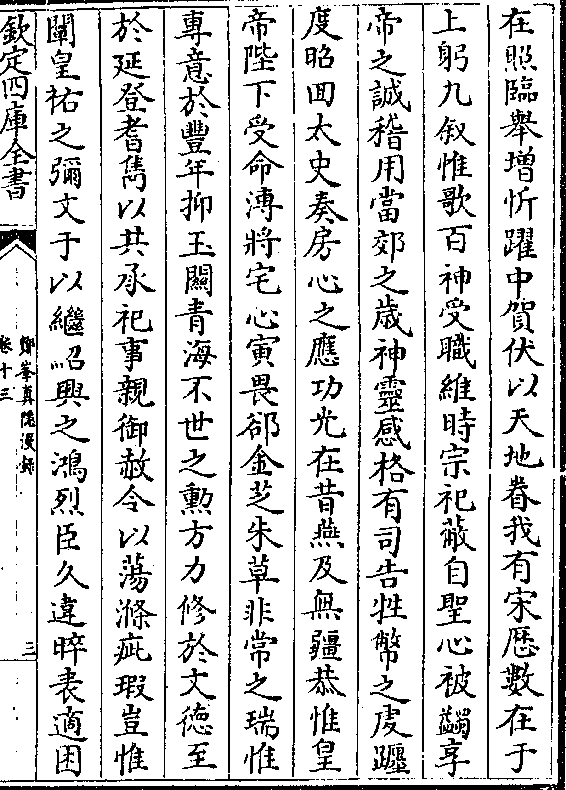 在照臨舉增忻躍中賀伏以天地眷我有宋厯數在于
上躬九叙惟歌百神受職維時宗祀蔽自聖心被蠲享
帝之誠稽用當郊之歲神靈感格有司告牲幣之䖍躔
度昭回太史奏房心之應功光在昔燕及無疆恭惟皇
帝陛下受命溥將宅心寅畏郤金芝朱草非常之瑞惟
專意於豐年抑玉關青海不世之勲方力修於文德至
於延登耆雋以共承祀事親御赦令以蕩滌疵瑕豈惟
闡皇祐之彌文于以繼紹興之鴻烈臣久違晬表適困
欽定四庫全書
鄮峯真隠漫録
卷十三
三